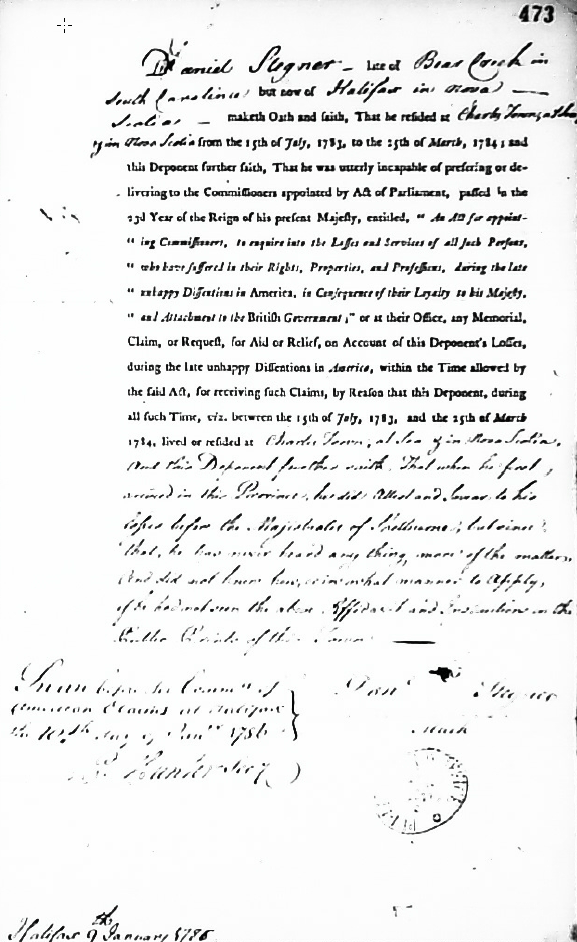 473
Daniel Stegner - late of Bear Creek in
South Carolina but now of Halifax in Nova
Scotia - maketh Oath and saith, That he resided at Charles Town, at Sea
& in Nova Scotia from the 15th of July, 1783, to the 25th of March, 1784; and
this Deponent further saith, That he was utterly incapable of preferring or de-
livering to the Commissioners appointed by Act of Parliament, passed in the
23d Year of the Reign of his present Majesty, entitled, " An Act for appoint-
" ing Commissioners, to enquire into the Losses and Services of all such Persons,
" who have suffered in their Rights, Properties, and Professions, during the late
" unhappy Dissentions in America, in Consequence of their Loyalty to his Majesty,
" and Attachment to the British Government;" or at their Office, any Memorial,
Claim, or Request, for Aid or Relief, on Account of this Deponent's Losses,
during the late unhappy Dissentions in America, within the Time allowed by
the said Act, for receiving such Claims, by Reason that this Deponent, during
all such Time, viz. between the 15th of July, 1783, and the 25th of March
1784, lived or resided at Charles Town, at Sea & in Nova Scotia.
And this Deponent further saith, That when he first
arrived in this Province, he did Attest and Swear to his
losses before the Majestrates of Shelburne, but since
that, he has never heard any thing more of the matter,
And did not know how, or in what manner to Apply,
if he had not seen the above Affidavit and Instructions in the
Public Prints of this Town
Sworn before the Commrs of
American Claims at Halifax
the 10th day of Janry 1786
P. Hunter Secy
Danl Stegner
Mark
Halifax 9th January 1786